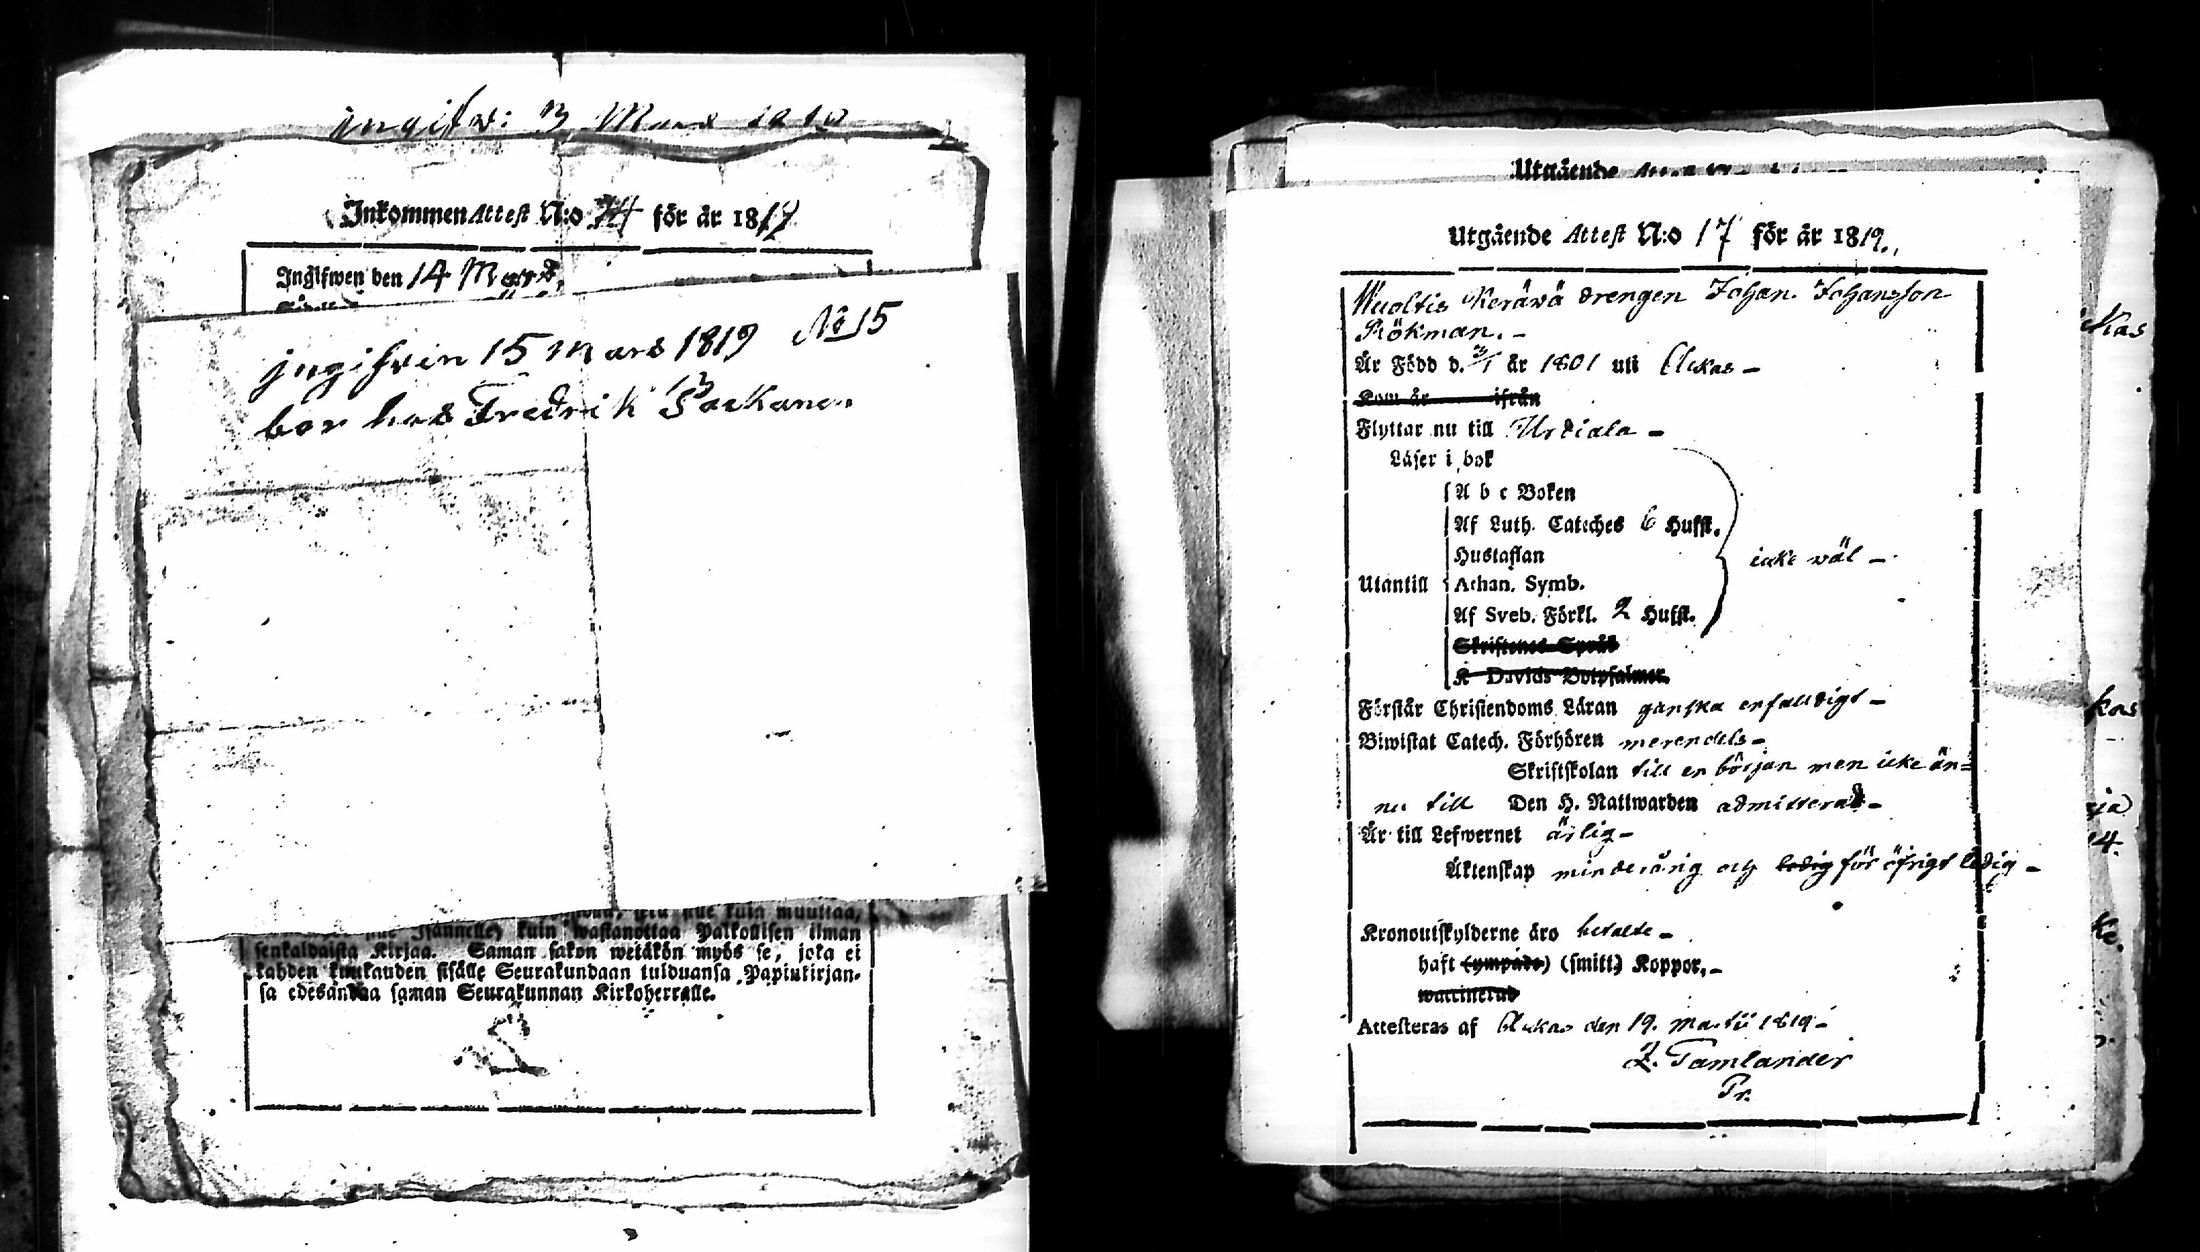 ingifv: 3 Mars
Inkommen Attest N:o 14 för år 1819
Ingifwen den 14 Mars
ingifven 15 Mars 1819 No 15
bor hos Fredrik
kuin muuttaa,
Isännelle) kuin wastanottaa Palkollisen ilman
senkaldaista Kirjaa. Saman sakon wetäkön myös se, joka ei
kahden kuukauden sisälle Seurakundaan tulduansa Papinkirjan-
sa edesandaa saman Seurakunnan Kirkoherralle.
Utgående
Utgående Attest N:o 17 för år 1819.
Wuoltis Kerävä drengen Johan Johansson
Rökman. -
Är Född d. 3/1 år 1801 uti Ackas -
Kom år ifrån
Flyttar nu till Urdiala -
Läser i bok
A b c Boken
Af Luth. Cateches 6 Hufst.
Hustaflan
icke väl -
Utantill Athan. Symb.
Af Sveb. Förkl. 2 Hufst.
Skriftenes Språk
K Davids Botpsalmer.
Förstår Christendoms Läran ganska enfalldigt -
Biwistat Catech. Förhören merendels -
Skriftskolan till en början men icke än=
nu till Den H. Nattwarden admitterad -
Är till Lefwernet ärlig -
Äktenskap minderårig och ledig för öfrigt ledig -
Kronoutskylderne äro betalte -
haft (ympade) (smitt) Koppor. -
waccinerad
Attesteras af Ackas den 19. Martii 1819 -
Z. Tamlander
Pr.
kas
kas
ja
14.
ke.